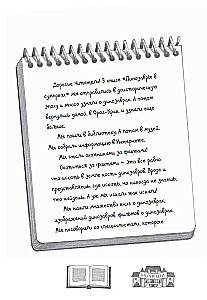 Дорогие читатели! В книге «Динозавры в
сумерках» мы отправились в доисторическую
эпоху и много узнали о динозаврах. А потом
вернулись домой, в Фрог-Крик, и узнали ещё
больше.
Мы пошли в библиотеку. А потом в музей.
Мы собрали информацию в Интернете.
Мы стали охотниками за фактами!
Охотиться за фактами – это всё равно
что искать в земле кости динозавров. Вроде и
представляешь, где искать, но никогда не знаешь,
что найдёшь. А уж мы нашли много чего!
Мы нашли множество книг о динозаврах
изображений динозавров, фильмов о динозаврах.
Мы поговорили со специалистами, которые
MUSEUM